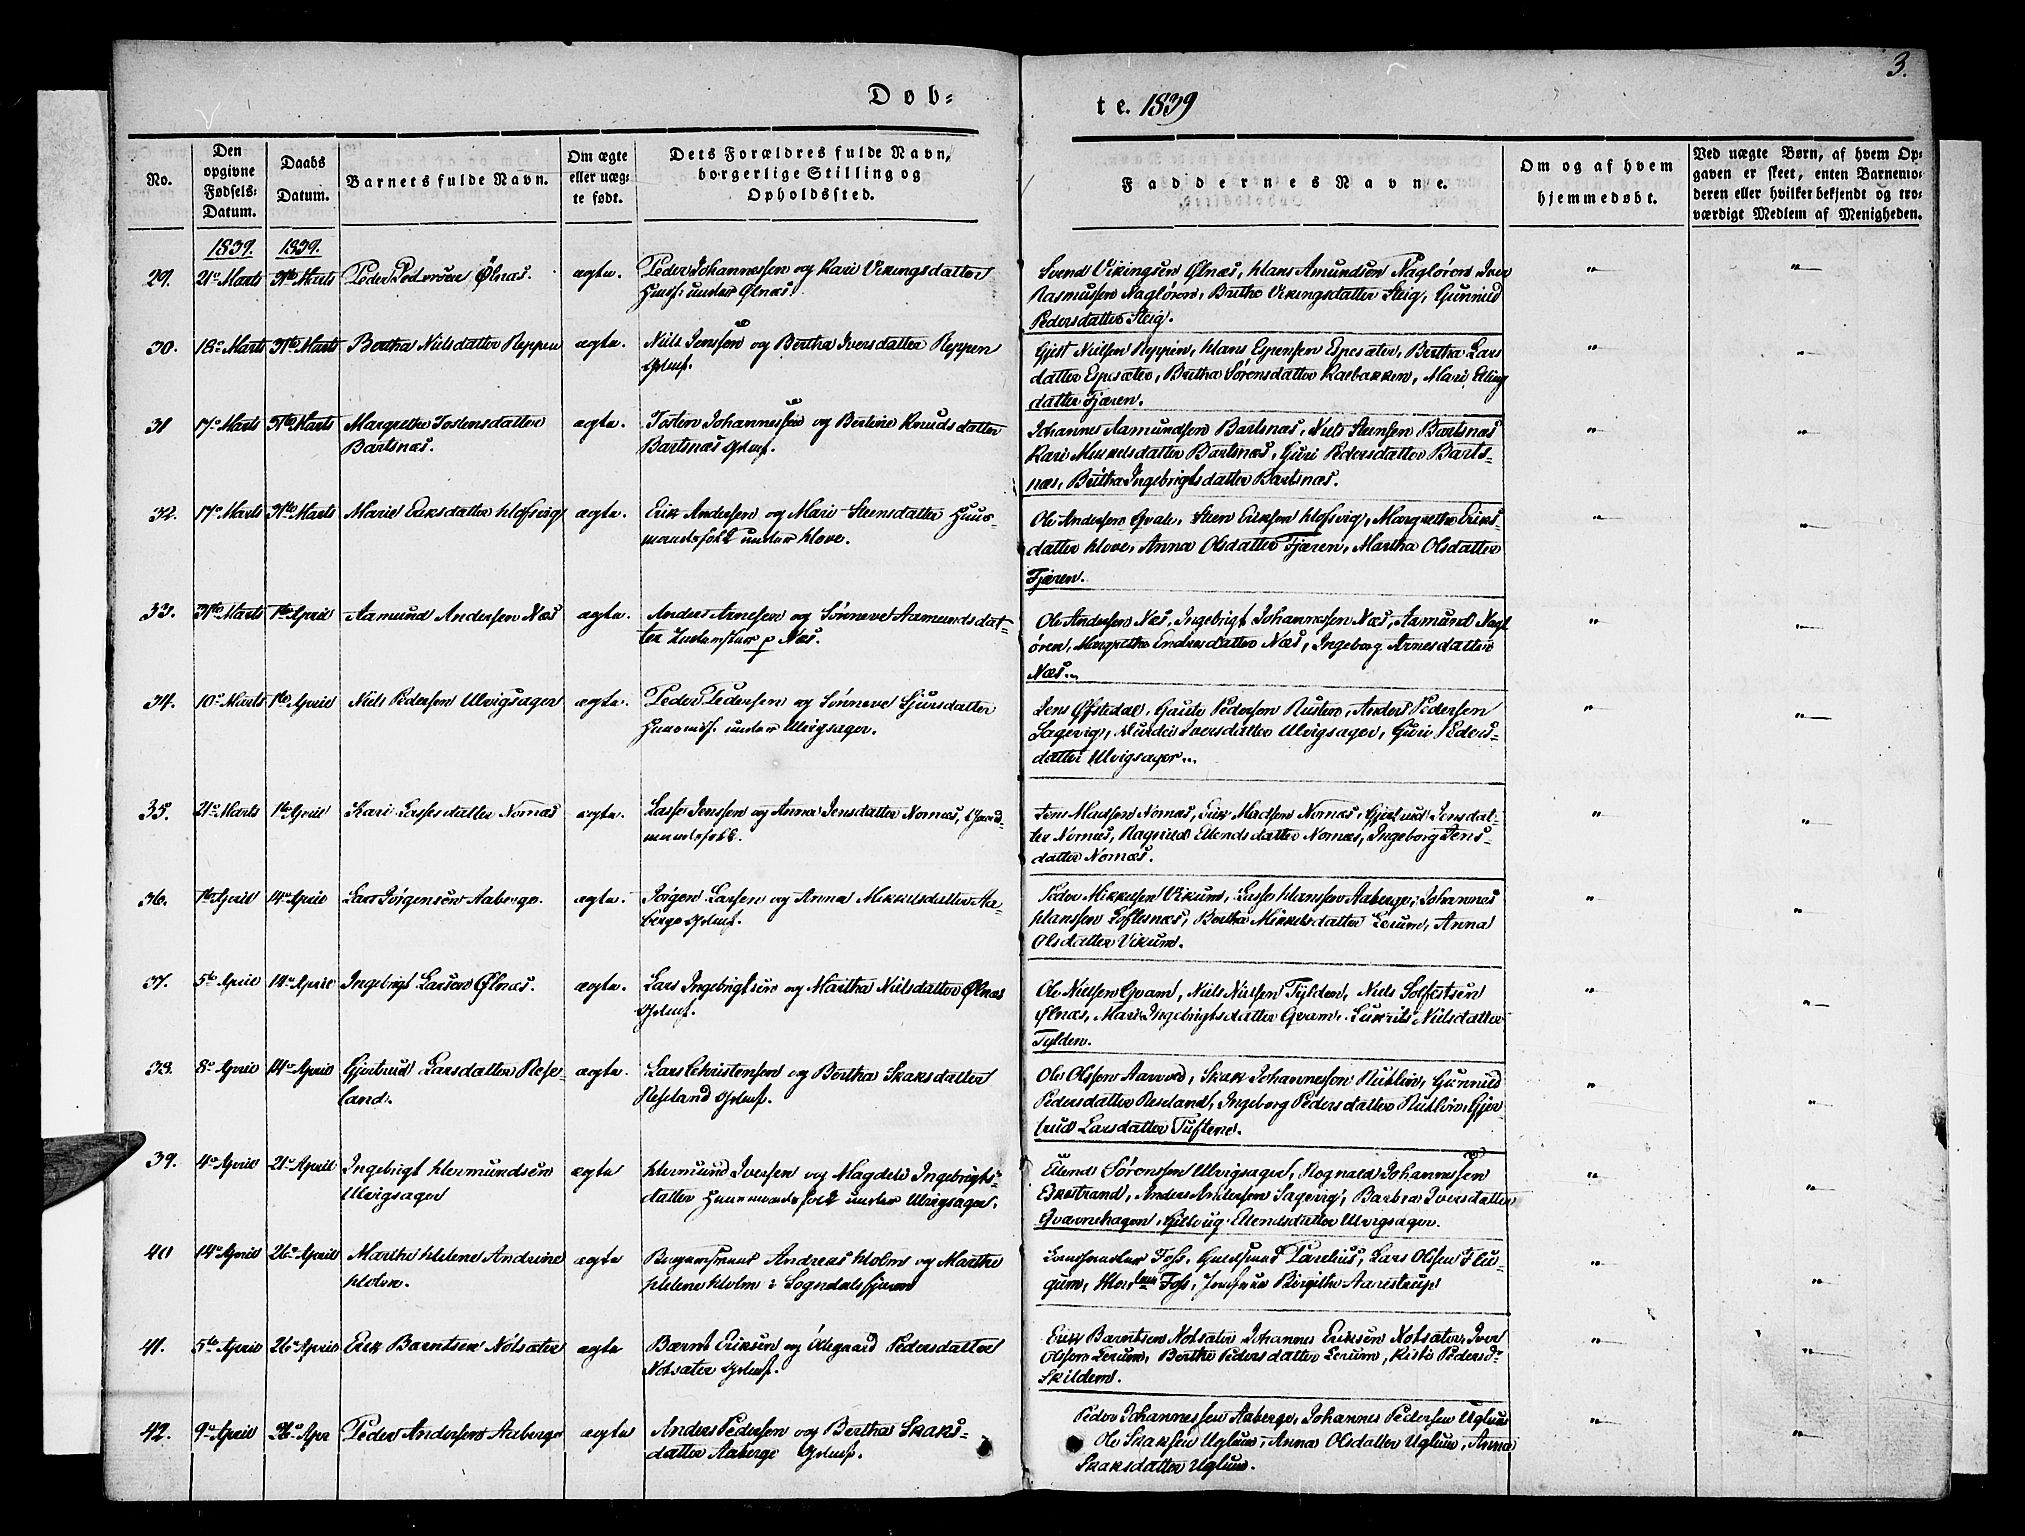 3.
Døb- te. 1839
No.
Den opgivne Fødsels-Datum.
Daabs Datum.
Barnets fulde Navn.
Om ægte eller uæg-te født.
Dets Forældres fulde Navn, borgerlige Stilling og Opholdssted.
Faddernes Navne.
Om og af hvem hjemmedøbt.
Ved uægte Børn, af hvem Op-gaven er skeet, enten Barnemo-deren eller hvilket bekjendt og tro-værdigt Medlem af Menigheden.
1839. 1839.
29. 21 Marts 31te Marts Peder Pedersen Ølnæs. ægte. Peder Johannessen og Kari Vikingsdatter
Huusf: under Ølnæs.
Svend Vikingsen Ølnæs, Hans Amundsen Nagløren, Iver
Rasmussen Nagløren, Brithe Vikingsdatter Steig, Gunnild
Pedersdatter Steig.
30. 18 Marts 31te Marts Bertha Nielsdatter Reppen ægte. Niels Jenssen og Bertha Iversdatter Reppen
Gjest Nielsen Reppen, Hans Espensen Espesæter, Bertha Lars
datter Espesæter, Brithe Sørensdatter Kalbakken, Mari Elling
datter Fjæren.
31 17 Marts 31te Marts Margrethe Jostensdatter
Bartsnæs.
ægte. Josten Johannessen og Berline Knudsdatter
Bartsnæs
Johannes Aamundsen Bartsnæs, Niels Steensen Bartsnæs
Kari Mikkelsdatter Bartsnæs, Guri Pedersdatter Barts-
næs, Brithe Ingebrigtsdatter Bartsnæs.
32. 17 Marts 31te Marts Marie Eriksdatter Hofsvig ægte. Erik Andersen og Mari Steensdatter Huus-
mandsfolk under Hove.
Ole Andersen Qvale, Steen Eriksen Hofsvig, Margrethe Eriks
datter Hove, Anna Olsdatter Fjæren, Martha Olsdatter
Fjæren.
33. 31te Marts 1te April Aamund Andersen Næs ægte. Anders Arnesen og Sønneve Aamundsdat-
ter Næs.
Ole Andersen Næs, Ingebrigt Johannessen Næs, Aamund Nagl
øren, Margrethe Endresdatter Næs, Ingeborg Arnesdatter
Næs.
34. 10 Marts 1te April Niels Pedersen Ulvigsager ægte. Peder Pedersen og Sønneve Sjursdatter
Huusmdf: under Ulvigsager.
Jens Øfstedal, Gaute Pedersen Rusten, Anders Pedersen
Sagevig, Iversdatter Ulvigsager, Guri Peders-
datter Ulvigsager.
35. 21 Marts 1te April Kari Lassesdatter Nornæs ægte. Lasse Jenssen og Anna Jensdatter Nornæs, Gaard-
mandsfolk.
Jens Madsen Nornæs, Erik Madsen Nornæs, Gjertrud Jensdat-
ter Nornæs, Ragnild Ellendsdatter Nornæs, Ingeborg Jens-
datter Nornæs.
36. 1te April 14 April Lars Jørgensen Aaberge. ægte. Jørgen Larsen og Anna Mikkelsdatter Aa-
berge
Peder Mikkelsen Vikum, Lasse Hanssen Aaberge, Johannes
Hanssen Loftesnæs, Bertha Mikkelsdatter Lerum, Anna
Olsdatter Vikum.
37. 5te April 14 April Ingebrigt Larsen Ølnæs. ægte. Lars Ingebrigtsen og Martha Nielsdatter Ølnæs
Ole Nielsen Qvam, Niels Nielsen Tylden, Niels Solfestsen
Ølnæs, Mari Ingebrigtsdatter Qvam, Nielsdatter
Tylden.
38. 8 April 14 April Gjertrud Larsdatter Rese-
land.
ægte. Lars Christensen og Bertha Skaksdatter
Reseland
Ole Olssen Aarvold, Skak Johannessen Rutlin, Gunnild
Pedersdatter Reseland, Ingeborg Pedersdatter Rutlin, Gjer
trud Larsdatter Tuftene.
39. 4 April 21 April Ingebrigt Hermundsen
Ulvigsager
ægte Hermund Iversen og Magdele Ingebrigts-
datter Huusmandsfolk under Ulvigsager.
Ellend Sørenssen Ulvigsager, Rognald Johannessen
Eikestrand, Anders Andersen Sagevig, Barbra Iversdatter
Qvarnehagen, Ellendsdatter Ulvigsager.
40 14 April 26 April Marthe Helene Andrine
Holm.
ægte Andreas Holm og Marthe
Helene Holm i Sogndalsfjæren
Foss, Lars Olssen Flu-
gum, Foss, Jomfrue Birgithe Aarestrup
41. 5te April 26 April Erik Barntsen Nølsæter ægte Bærnt Eriksen og Ødegaard Pedersdatter
Nølsæter
Erik Barntsen Nølsæter, Johannes Eriksen Nølsæter, Iver
Olssen Lerum, Berthe Pedersdatter Lerum, Pedersd
Skildem.
42. 9 April 26 Apr Peder Andersen Aaberge ægte Anders Pedersen og Bertha Skaks-
datter Aaberge
Peder Johannessen Aaberge, Johannes Pedersen Uglum
Ole Skaksen Uglum, Anna Olsdatter Uglum, Anna
Skaksdatter Uglum.